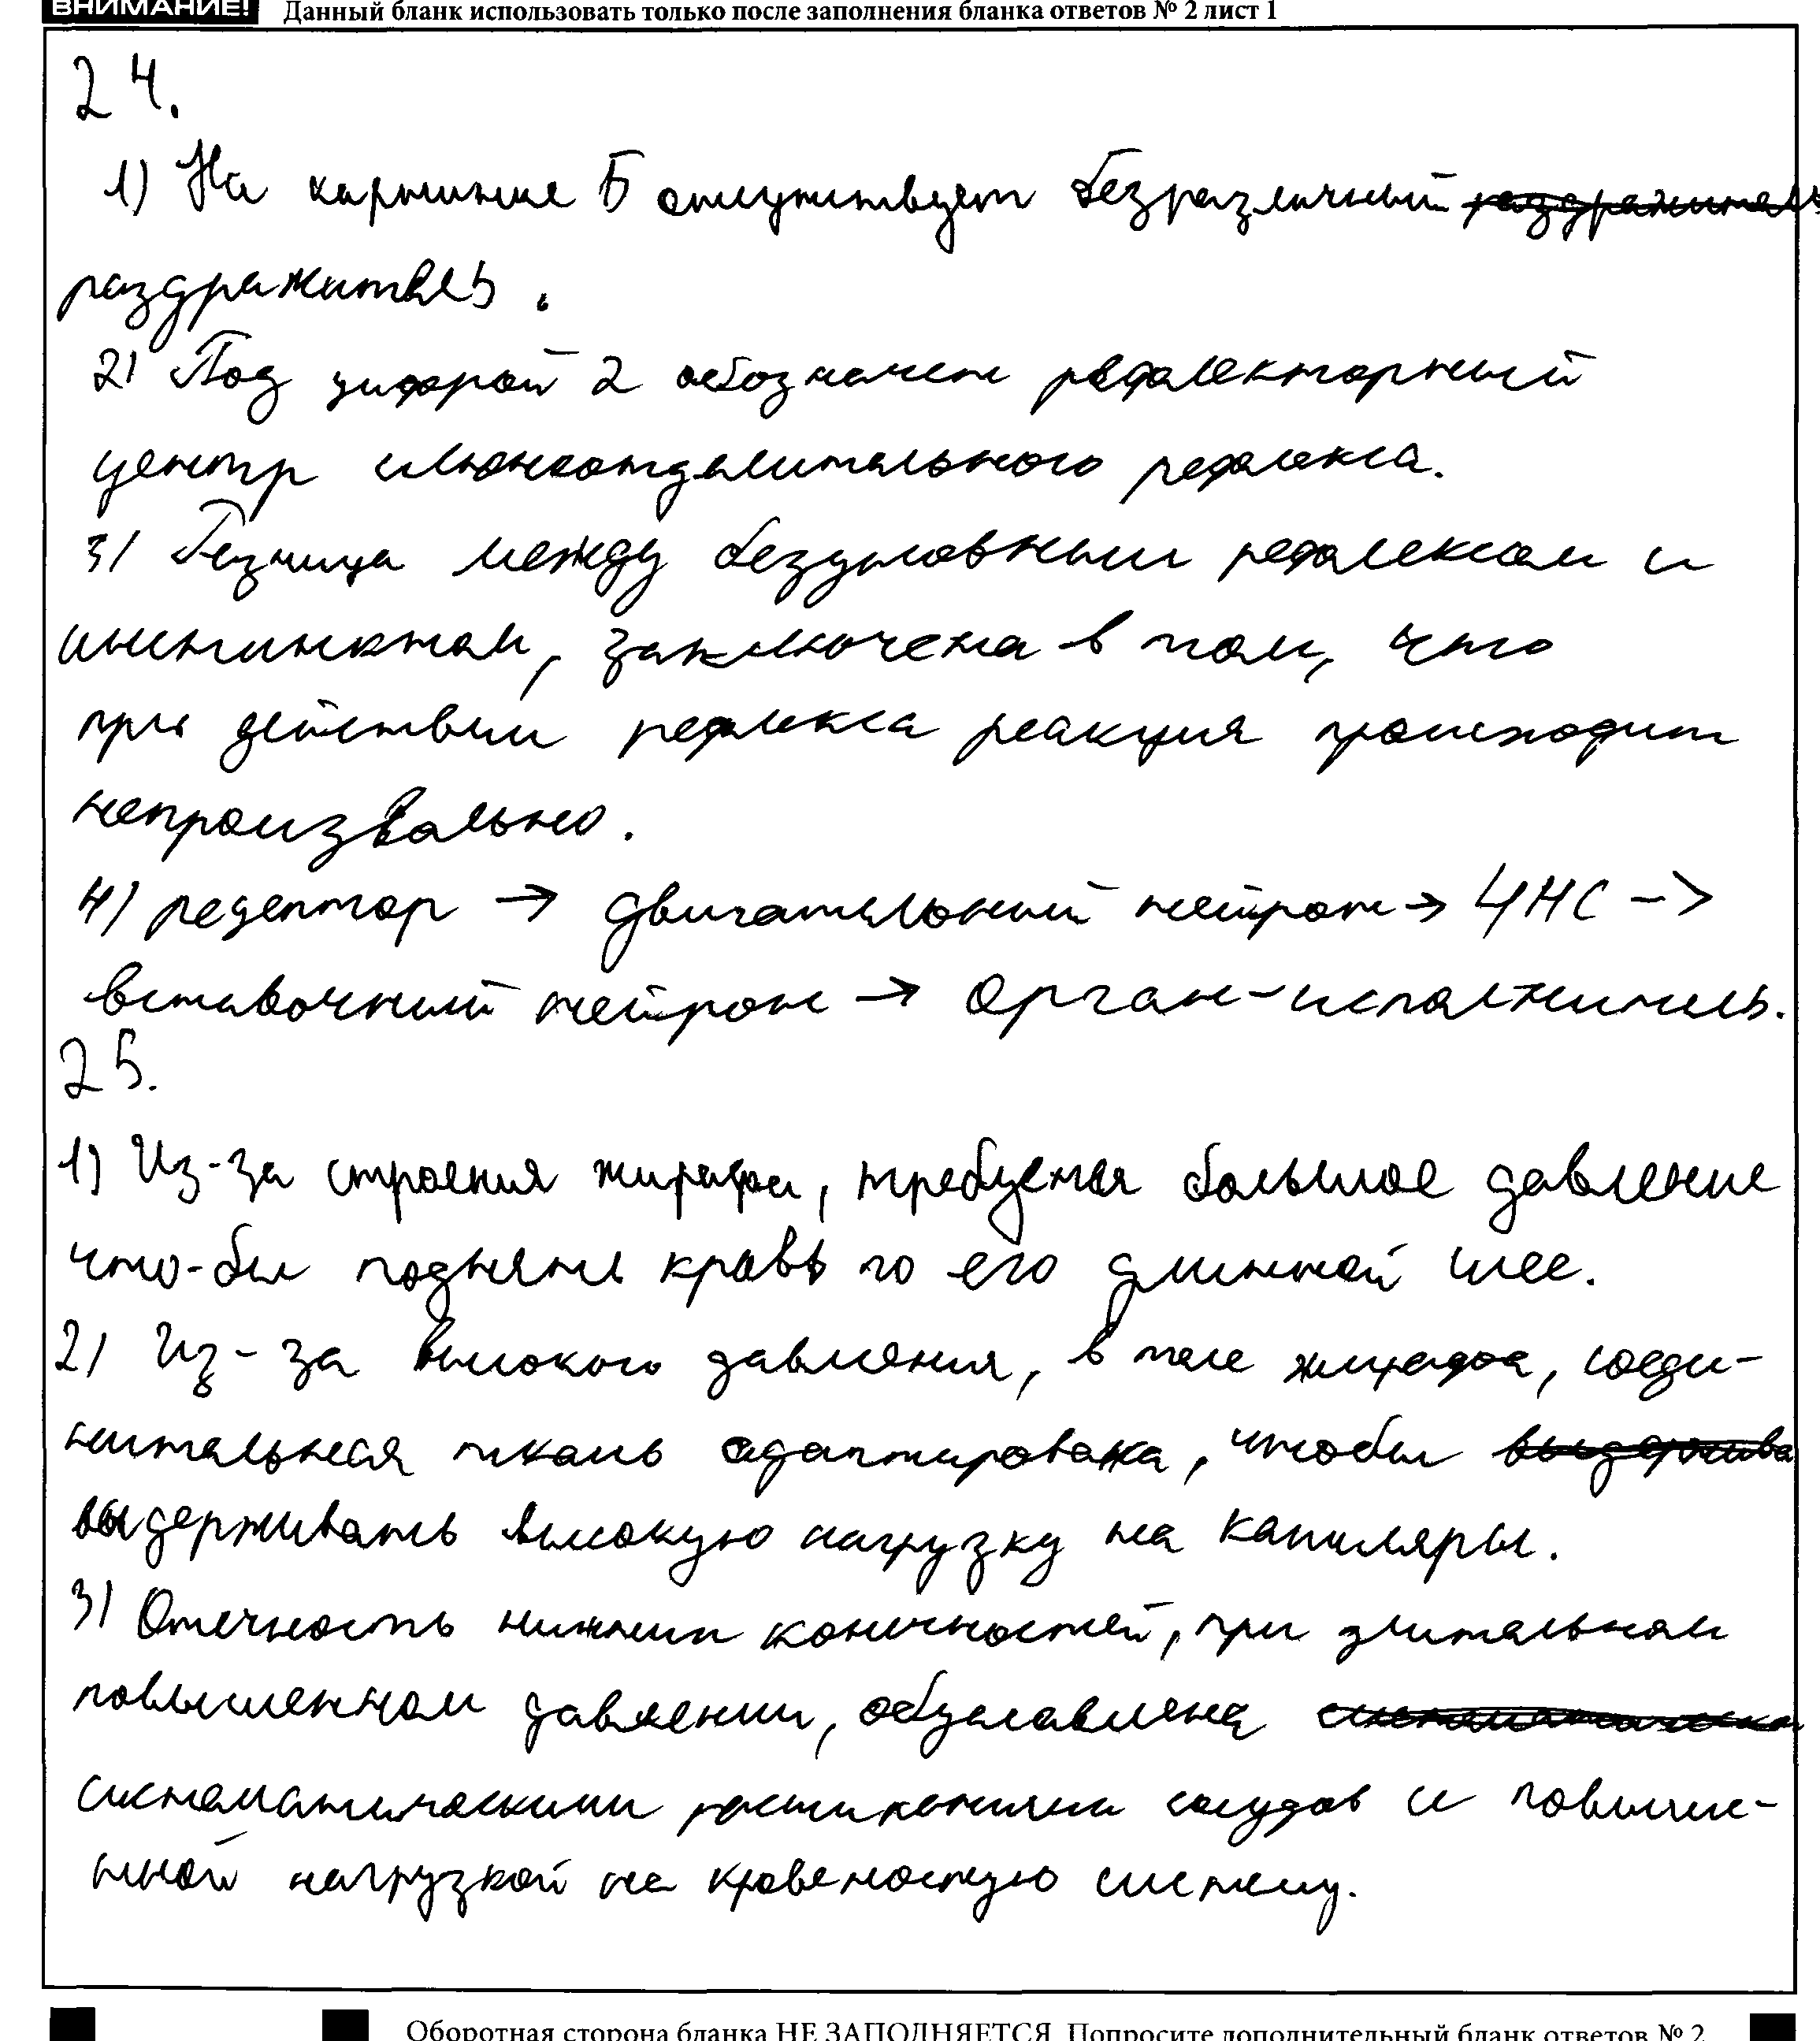 ВНИМАНИЕ! Данный бланк использовать только после заполнения бланка ответов № 2 лист 1
24.
1) На картинке Б отсутствует безразличный раздражитель
раздражитель.
2) Под цифрой 2 обозначен рефлекторный
центр слюноотделительного рефлекса.
3) Разница между безусловным рефлексом и
инстинктом, заключена в том, что
при действии рефлекса реакция происходит
непроизвально.
4) рецептор → двигательный нейрон → ЦНС →
вставочный нейрон → орган-исполнитель.
25.
1) Из-за строения жирафа, требуется большое давление
что-бы поднять кровь по его длинной шее.
2) Из-за высокого давления, в теле жирафа, соеди-
нительная ткань адаптирована, чтобы выдержива
выдерживать высокую нагрузку на капиляры.
3) Отечность нижних конечностей, при длительном
повышенном давлении, обуславлена систематическим
систематическими растяжениями сосудов и повышен-
нной нагрузкой на кровеностую систему.
Оборотная сторона бланка НЕ ЗАПОЛНЯЕТСЯ. Попросите дополнительный бланк ответов № 2